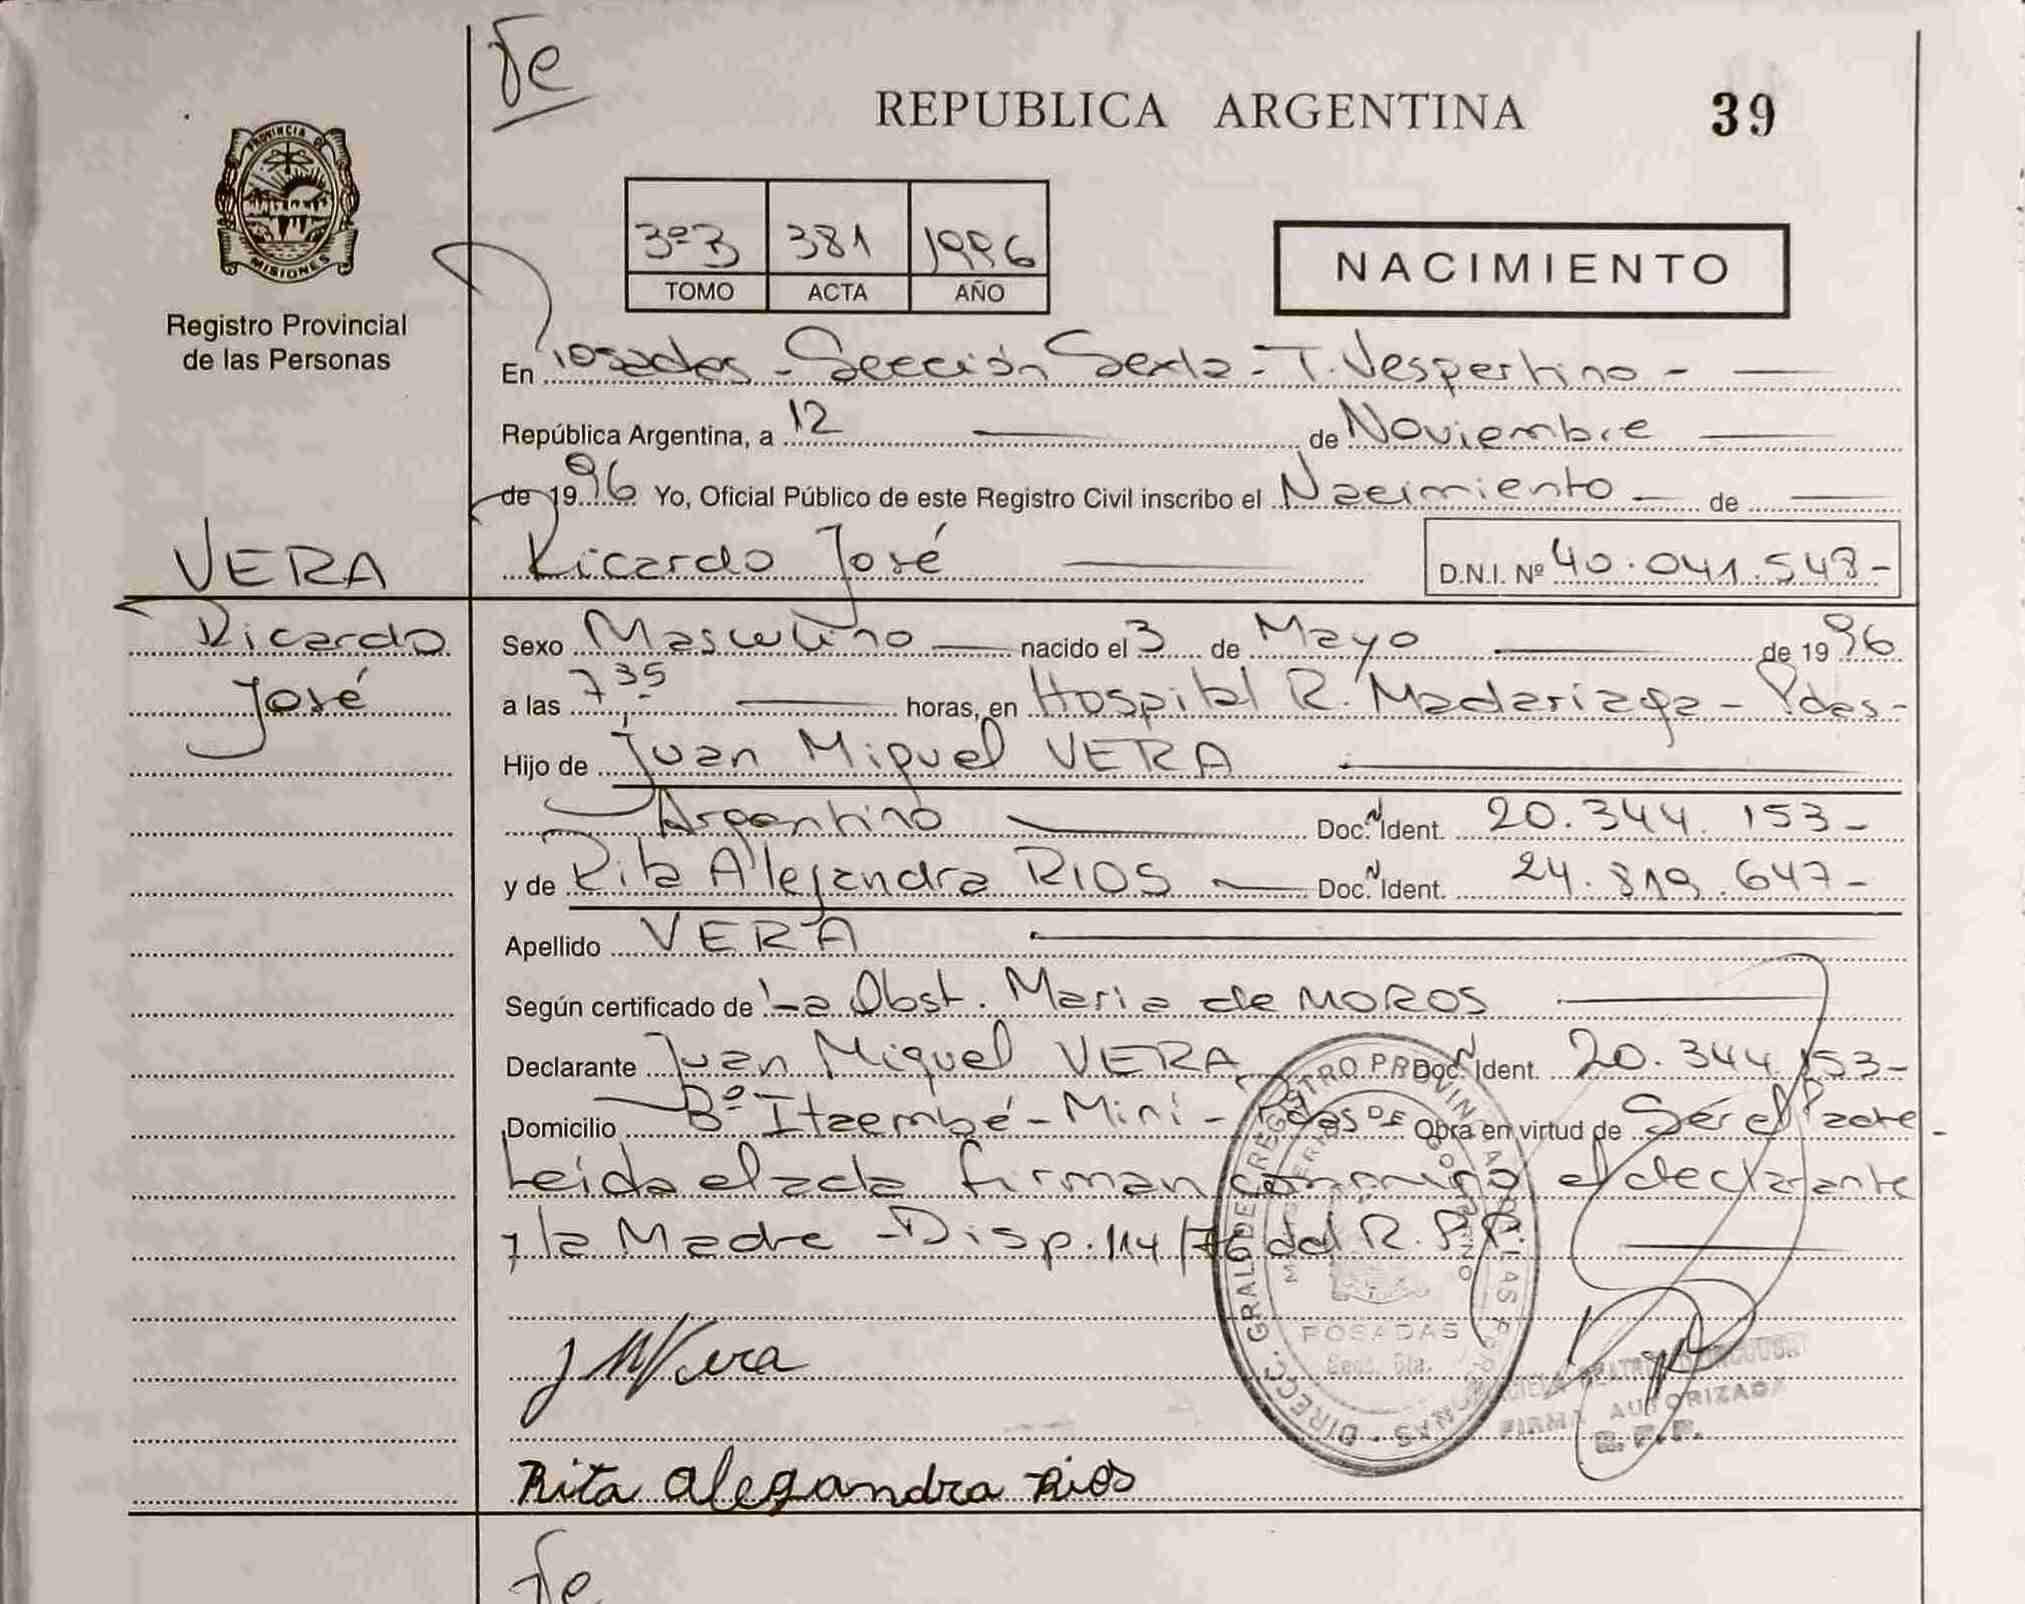 Fe
REPUBLICA ARGENTINA 39
PROVINCIA DE
MISIONES
Registro Provincial
de las Personas
3º B 381 1996
TOMO ACTA AÑO
NACIMIENTO
En Posadas - Sección Sexta - T. Vespertino -
República Argentina, a 12 de Noviembre
de 1996 Yo, Oficial Público de este Registro Civil inscribo el Nacimiento de
VERA Ricardo José D.N.I. Nº 40.041.548-
Ricardo
José
Sexo Masculino nacido el 3 de Mayo de 1996
a las 7,35 horas, en Hospital R. Madariaga - Pdas-
Hijo de Juan Miguel VERA
Argentino Doc. N Ident. 20.344.153-
y de Rita Alejandra RIOS Doc. N Ident. 24.819.647-
Apellido VERA
Según certificado de La Obst. Maria de MOROS
Declarante Juan Miguel VERA Doc. N Ident. 20.344.153-
Domicilio Bº Itaembé - Miní - Pdas Obra en virtud de Ser el Padre -
Leida el acta firman conmigo el declarante
y la Madre - Disp. 114/76 del R.P.P.
DIRECC. GRAL. DEL REGISTRO PROVINCIAL DE LAS PERSONAS
POSADAS
Secc. 6ta.
J M Vera
FIRMA AUTORIZADA
R.P.P.
Rita Alegandra Rios
Fe